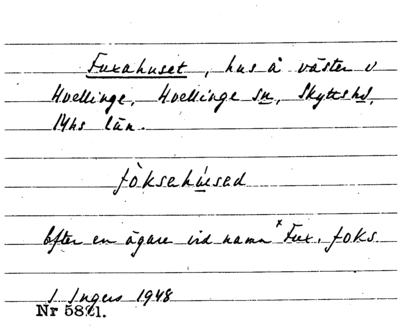 Fuxahuset, hus å väster v
Hvellinge, Hvellinge sn, Skytts hd,
Mhs län.
fòksahùsad
Efter en ägare vid namn ˣFux. foks.
I. Ingers 1948
Nr 5821.